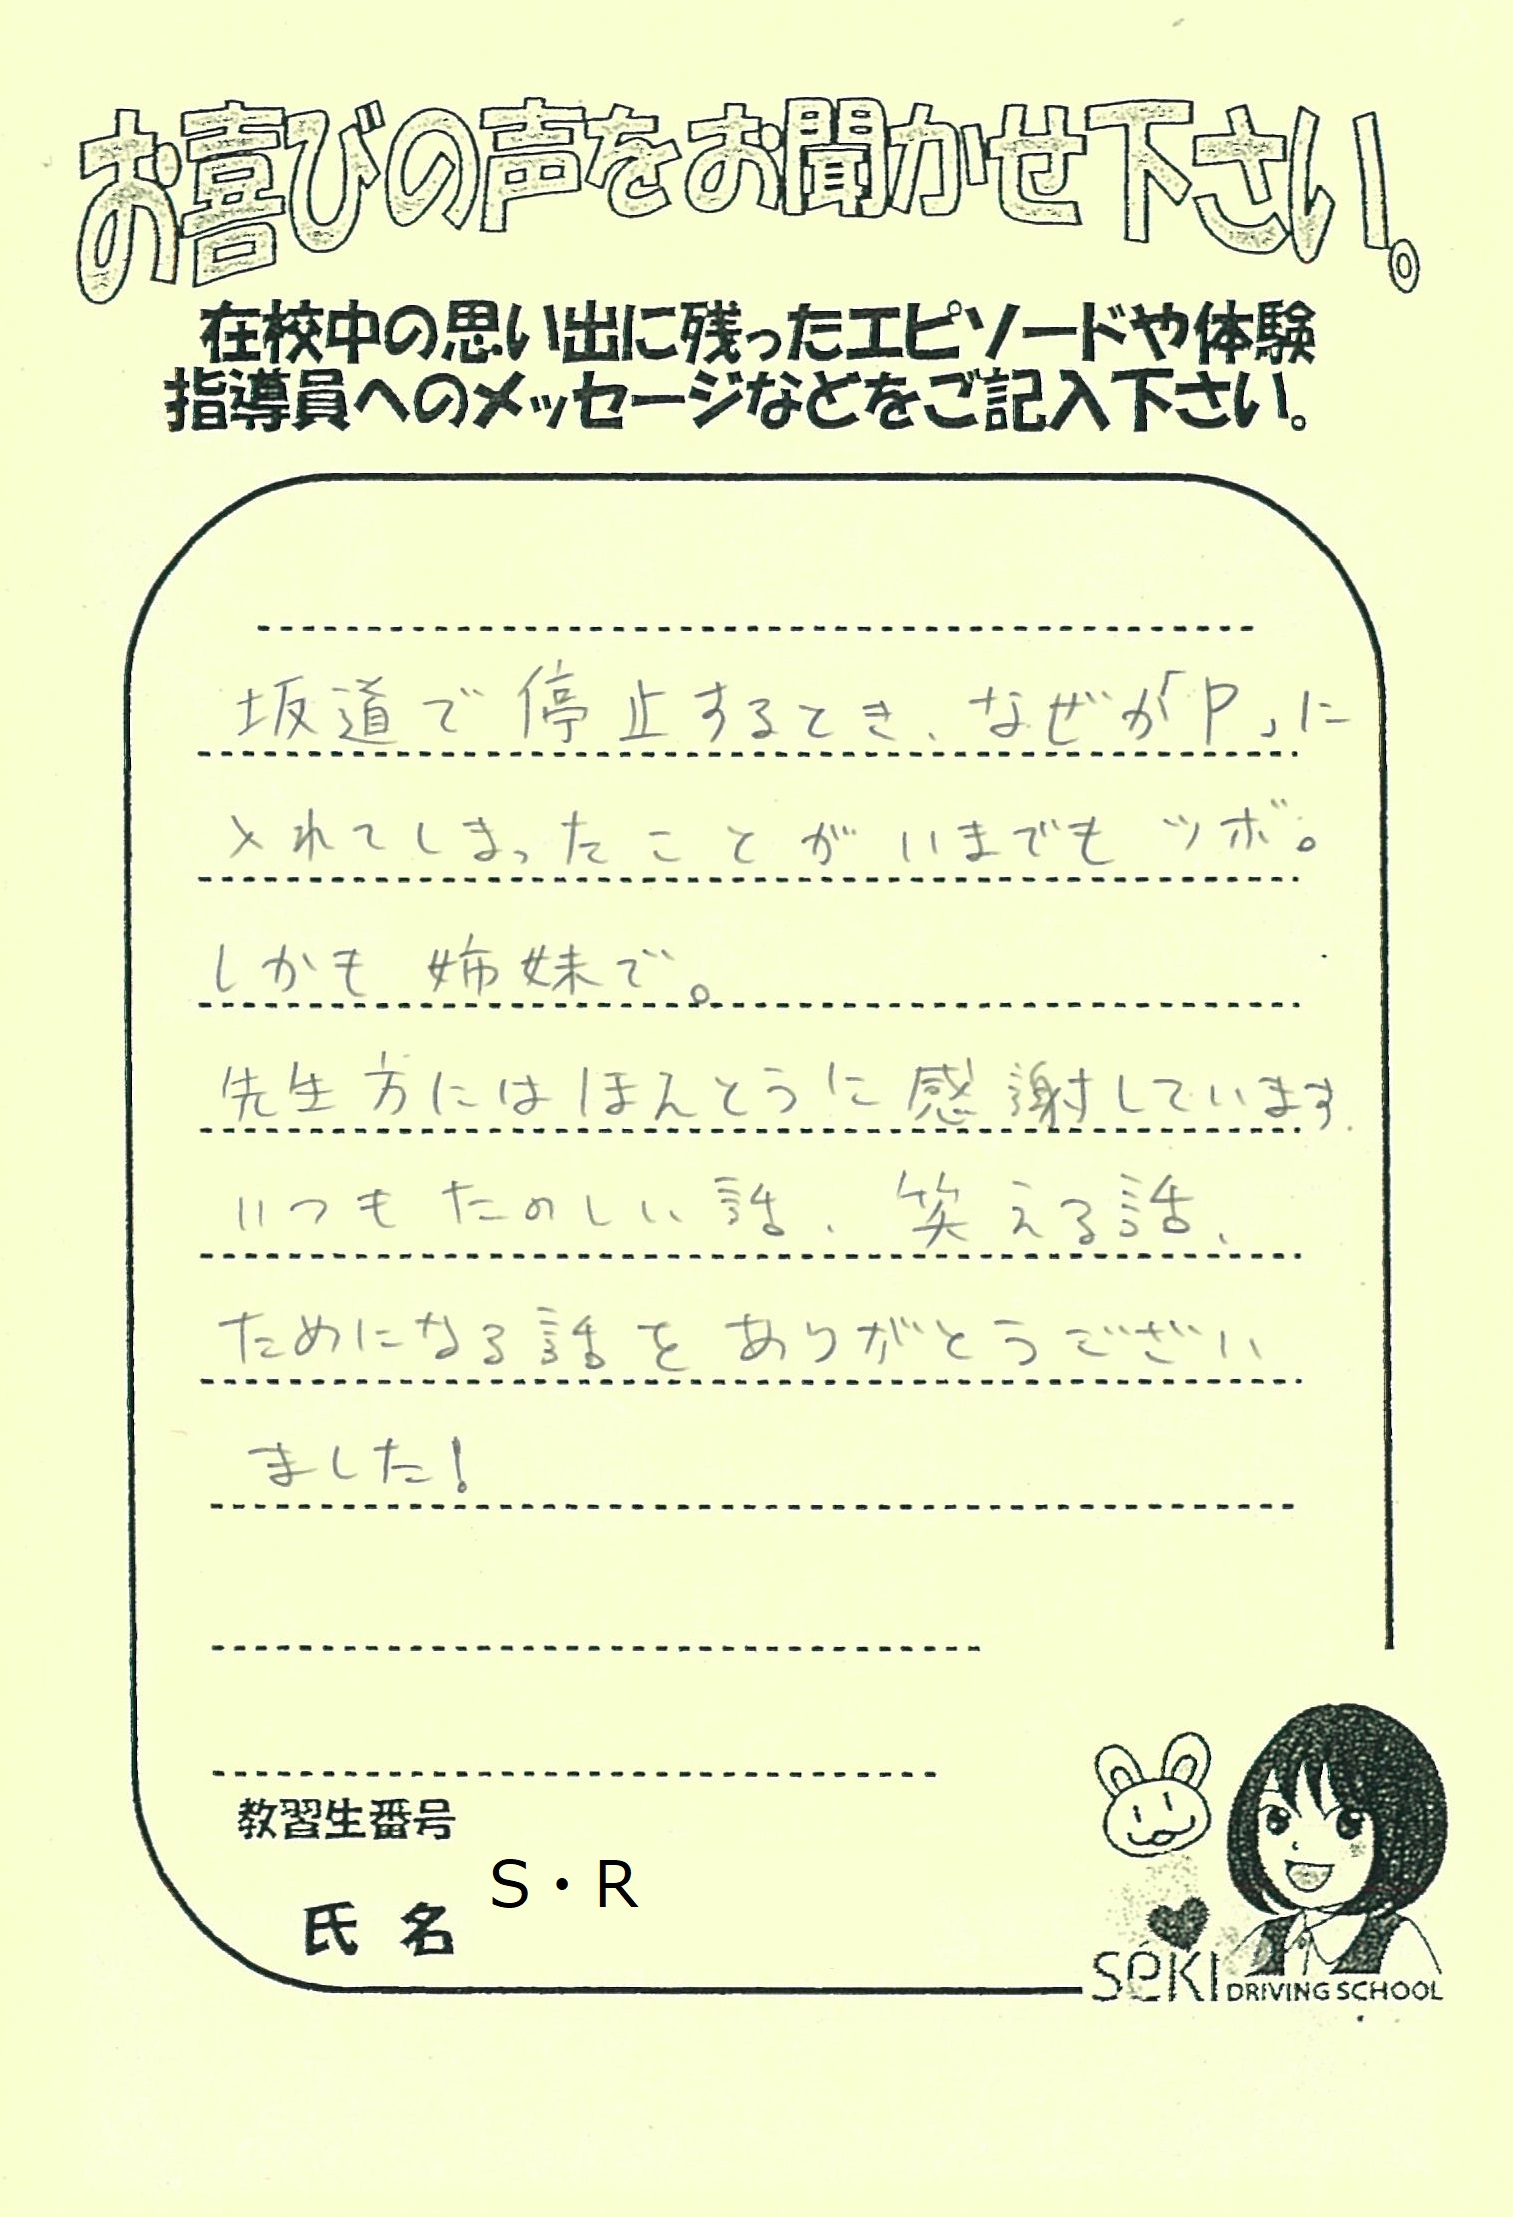 お喜びの声をお聞かせ下さい。
在校中の思い出に残ったエピソードや体験
指導員へのメッセージなどをご記入下さい。
坂道で停止するとき、なぜか「P」に
入れてしまったことがいまでもツボ。
しかも姉妹で。
先生方にはほんとうに感謝しています.
いつもたのしい話、笑える話、
ためになる話をありがとうござい
ました!
教習生番号
氏名 S・R
SeKI DRIVING SCHOOL